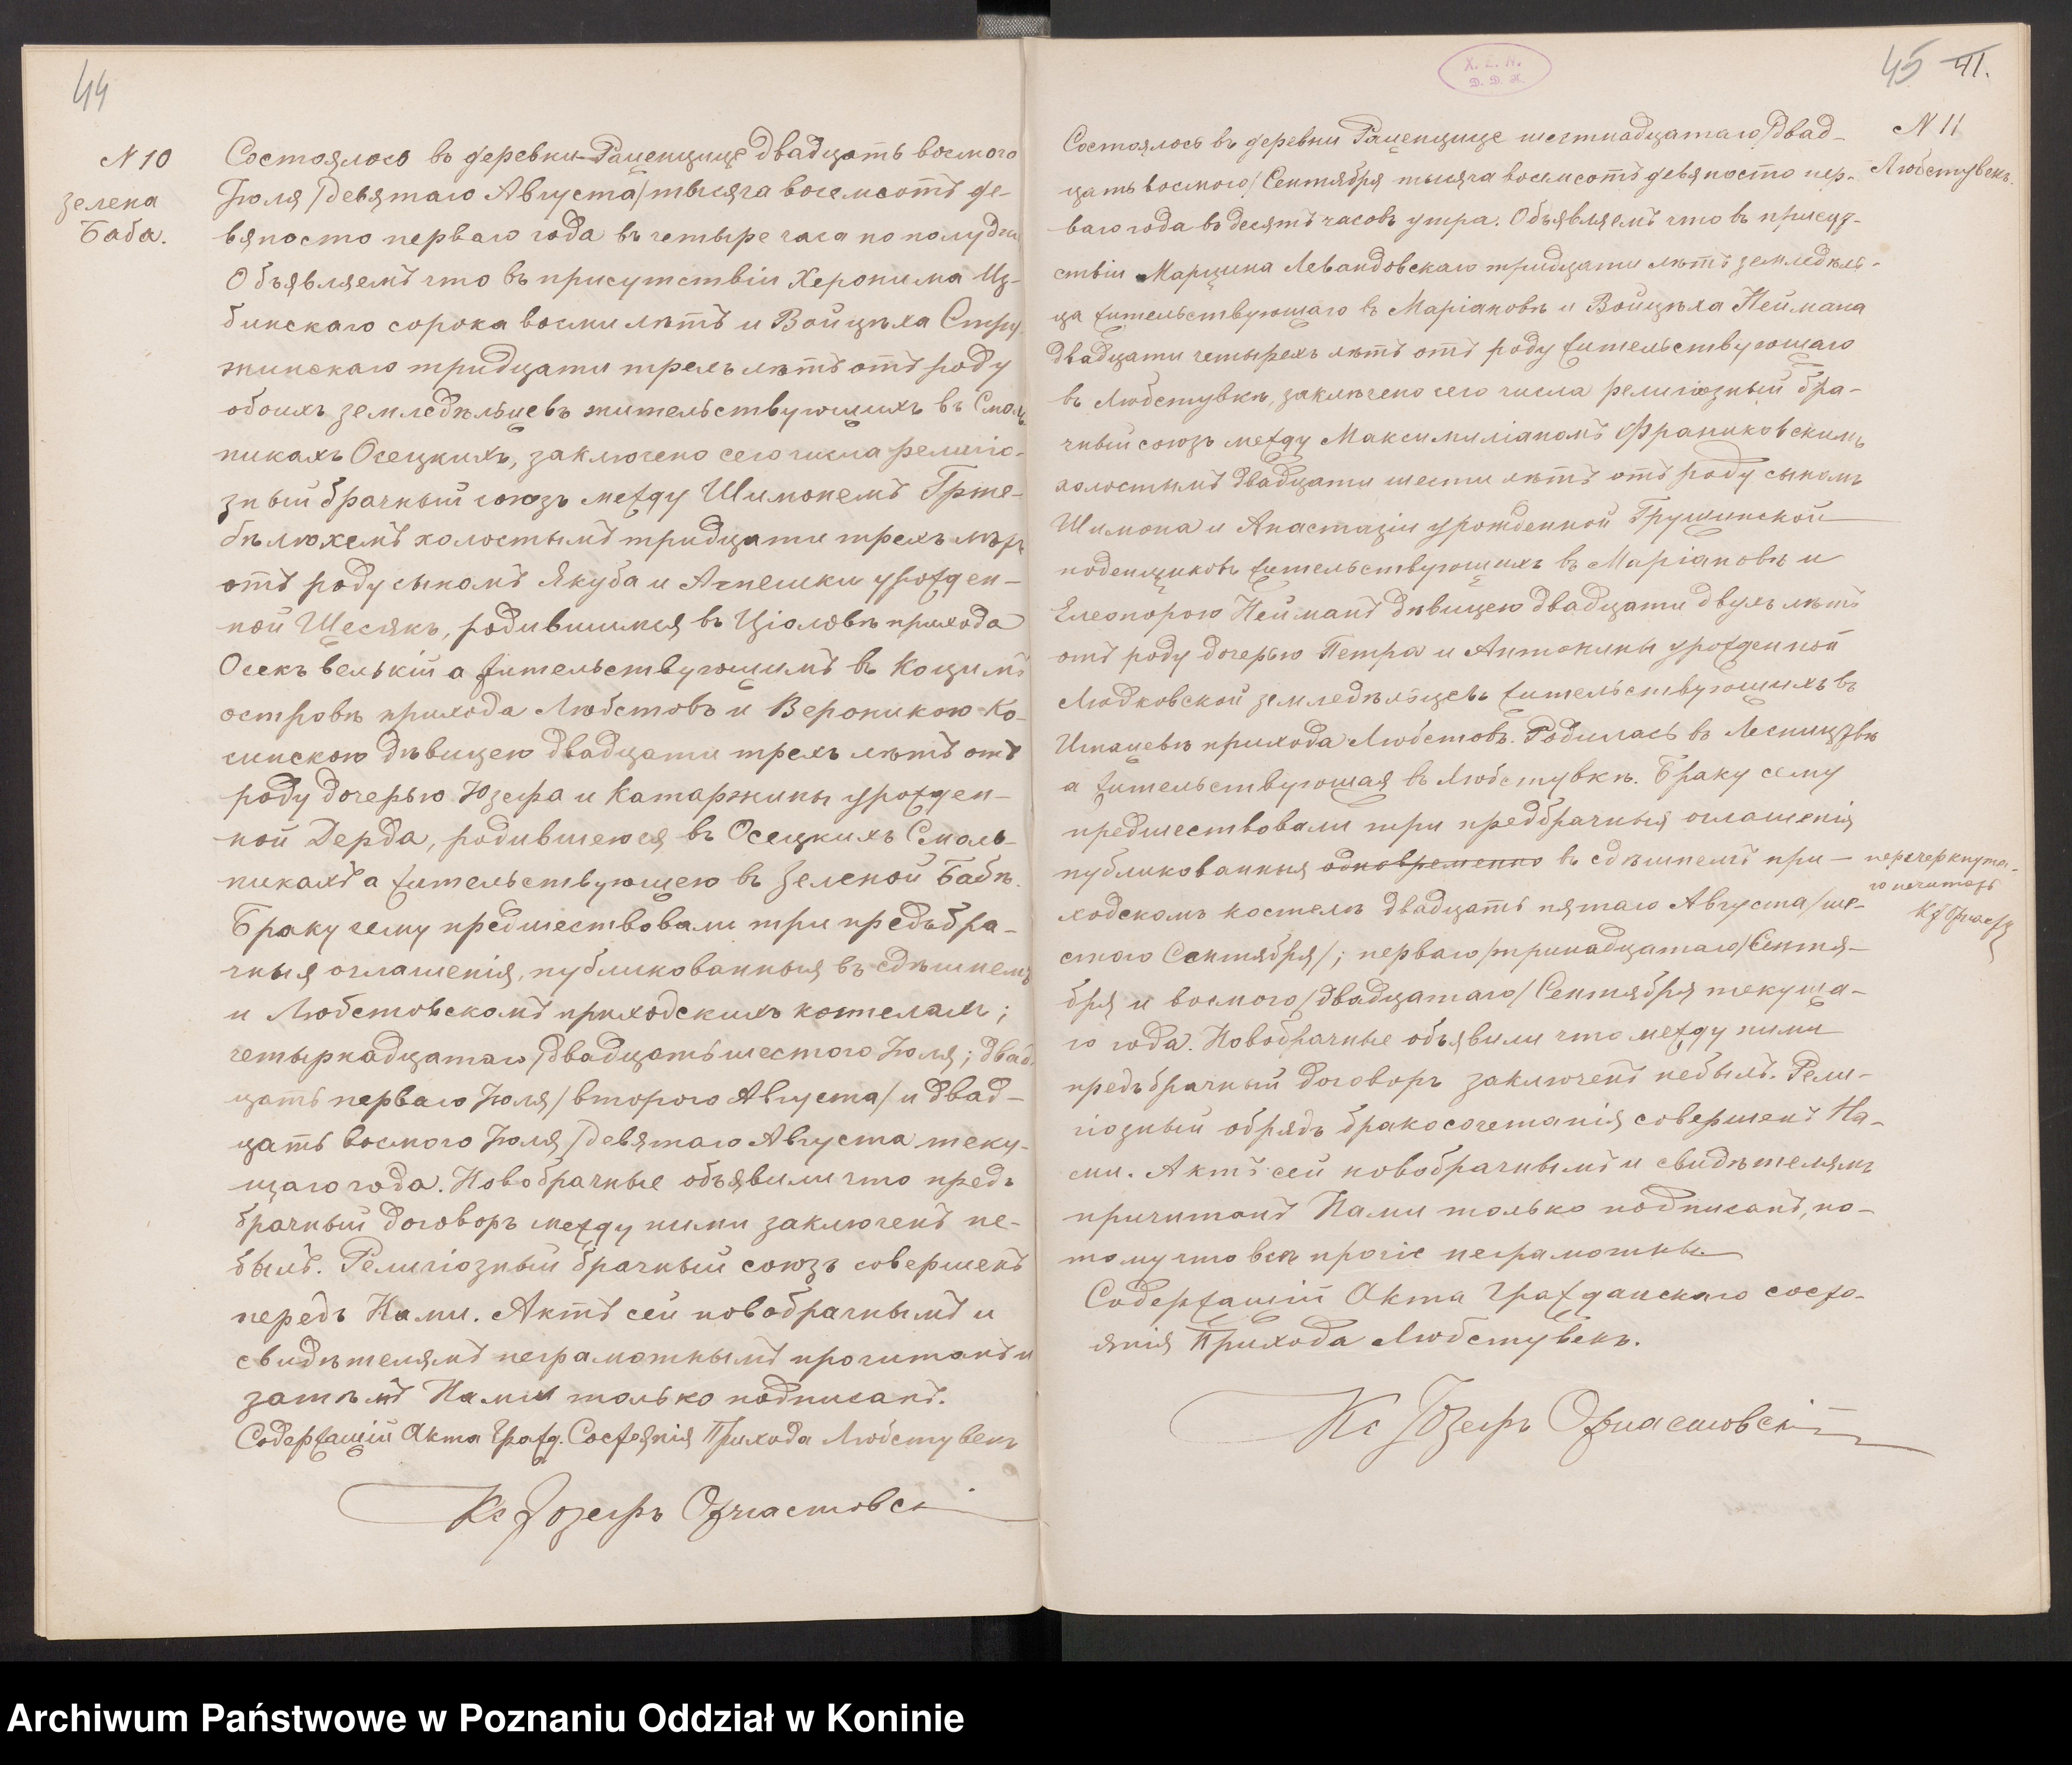 44
N 10
зелена
Баба.
Состоялось въ деревни Раценцице двадцать восмого
Іюля /девятаго Августа/ тысяча восемсотъ де-
вяносто перваго года въ четыре часа по полудни
Объявляемъ что въ присутствіи Херонима Из-
бинскаго сорока восми лѣтъ и Войцѣха Стру-
жинскаго тридцати трехъ лѣтъ отъ роду
обоихъ земледѣльцевъ жительствующихъ въ Смоль-
никахъ Осецкихъ, заключено сего числа религіо-
зный брачный союзъ между Шимонемъ Грже-
бѣлюхемъ холостымъ тридцати трехъ лѣтъ
отъ роду сыномъ Якуба и Агнешки урожден-
ной Щесякъ, родившимся въ Ціоловѣ прихода
Осекъ велькій а жительствующимъ въ Коцимъ
островѣ прихода Любстовъ и Вероникою Ко-
синскою дѣвицею двадцати трехъ лѣтъ отъ
роду дочерью Юзефа и Катаржины урожден-
ной Дерда, родившеюся въ Осецкихъ Смоль-
никахъ а жительствующею въ Зеленой Бабѣ.
Браку сему предшествовали три предъбра-
чныя оглашенія, публикованныя въ сдѣшнемъ
и Любстовскомъ приходскихъ костелахъ;
четырнадцатаго /двадцать шестого Іюля; двад-
цать перваго Іюля /второго Августа/ и двад-
цать восмого Іюля /девятаго Августа теку-
щаго года. Новобрачные объявили что предъ
брачный договоръ между ними заключенъ не-
былъ. Религіозный брачный союзъ совершенъ
передъ Нами. Актъ сей новобрачнымъ и
свидѣтелямъ неграмотнымъ прочитанъ и
затѣмъ Нами только подписанъ.
Содержащій Акта Гражд. Состоянія Прихода Любстувекъ
Кс Юзефъ
45 41.
X. L. N.
D. D. K.
N 11
Любстувекъ.
Состоялось въ деревни Раценцице шестнадцатаго /двад-
цать восмого/ Сентября тысяча восемсотъ девяносто пер-
ваго года въ десять часовъ утра. Объявляемъ что въ присуд-
ствіи Марцина Левандовскаго тридцати лѣтъ земледѣль-
ца жительствующаго въ Маріановѣ и Войцѣха Неймана
двадцати четырехъ лѣтъ отъ роду жительствующаго
въ Любстувкѣ, заключено сего числа религіозный бра-
чный союзъ между Максимиліаномъ Франиковскимъ
холостымъ двадцати шести лѣтъ отъ роду сыномъ
Шимона и Анастазіи урожденной Грушинской
поденщиковъ жительствующихъ въ Маріановѣ и
Елеонорою Нейманъ дѣвицею двадцати двухъ лѣтъ
отъ роду дочерью Петра и Антонины урожденной
Людковской земледѣльцевъ жительствующихъ въ
Игнацевѣ прихода Любстовъ. Родилась въ Лесництвѣ
а жительствующая въ Любстувкѣ. Браку сему
предшествовали три предбрачныя оглашенія
публикованныя одновременно въ сдѣшнемъ при-
ходскомъ костелѣ двадцать пятаго Августа /ше-
стого Сентября/; перваго /тринадцатаго/ Сентя-
бря и восмого /двадцатаго/ Сентября текуща-
го года. Новобрачные объявили что между ними
предъбрачный договоръ заключенъ небылъ. Рели-
гіозный обрядъ бракосочетанія совершенъ На-
ми. Актъ сей новобрачнымъ и свидѣтелямъ
причитанъ Нами только подписанъ, по-
тому что всѣ прочіе неграмотны.
Содержащій Акта Гражданскаго состо-
янія Прихода Любстувекъ.
Кс Юзефъ
перечеркнута-
го нечитать
Archiwum Państwowe w Poznaniu Oddział w Koninie